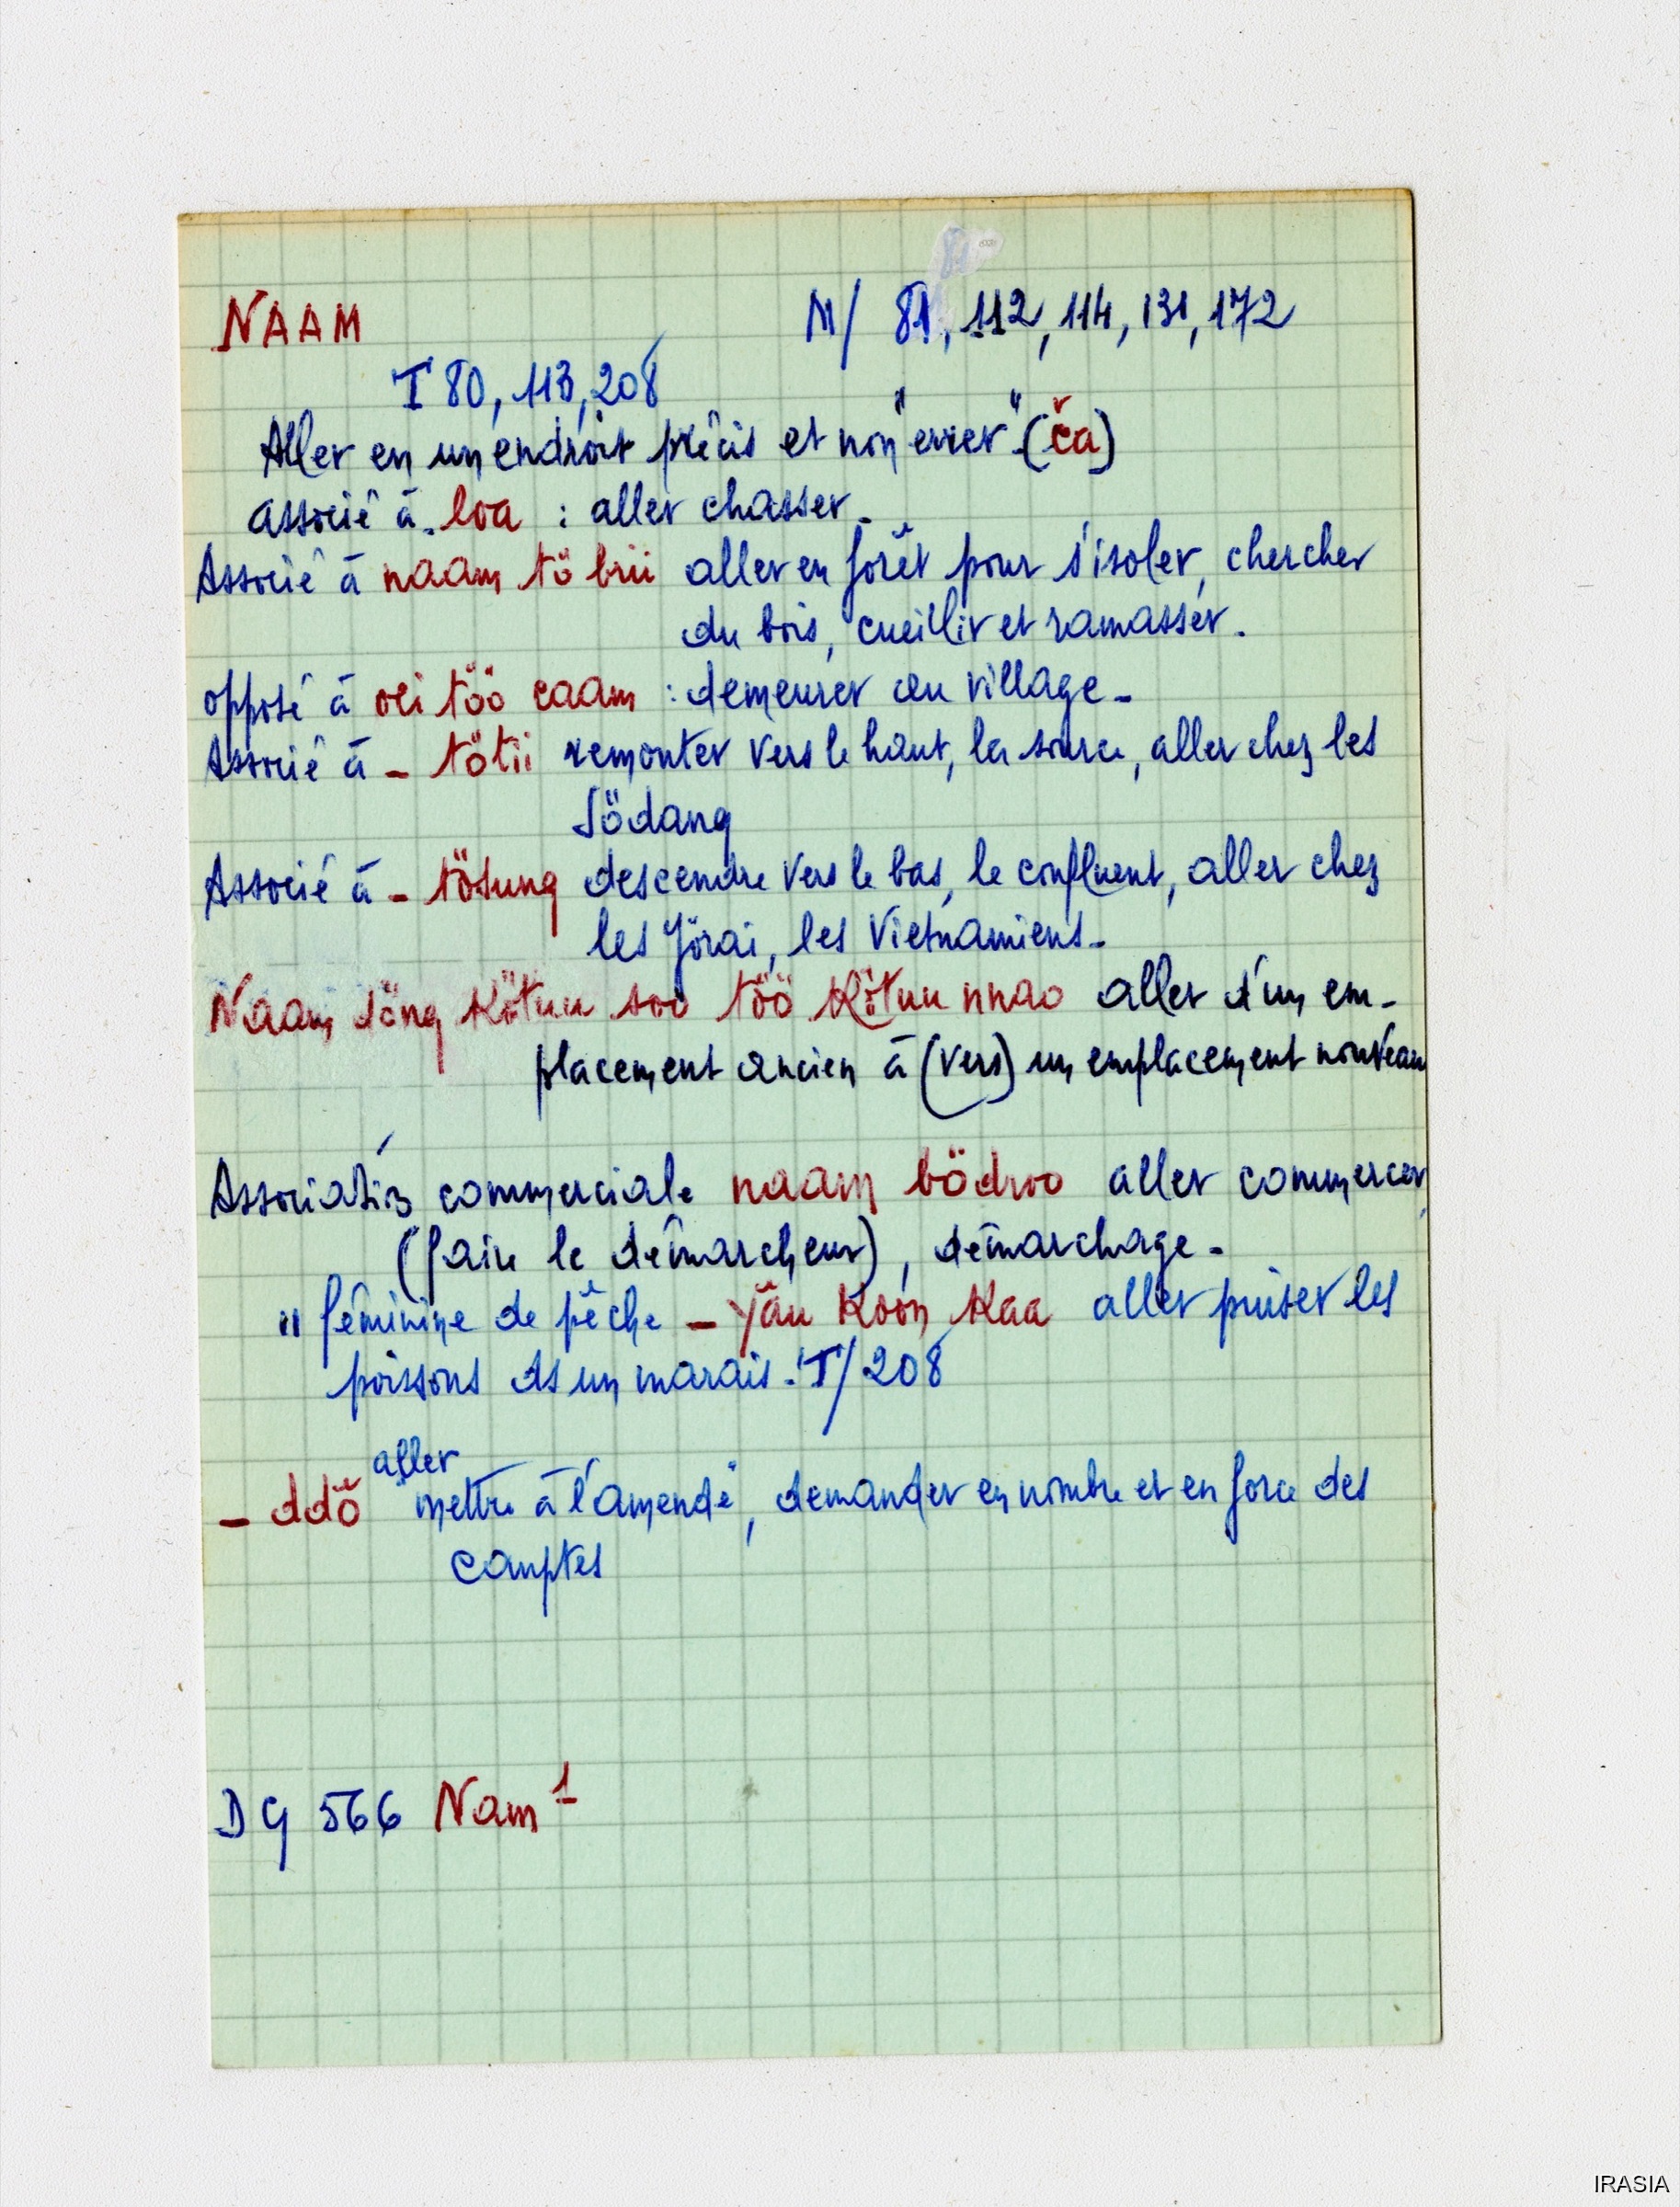 NAAM M/ 81, 112, 114, 131, 172
T 80, 113, 208
Aller en un endroit précis et non "errer" (ča)
associé à - loa : aller chasser -
Associé à naam tö brii aller en forêt pour s'isoler, chercher
du bois, cueillir et ramasser.
opposé à oei töö caam : demeurer au village -
Associé à - tötii remonter vers le haut, la source, aller chez les
Södang
Associé à - tösung descendre vers le bas, le confluent, aller chez
les Jörai, les Vietnamiens -
Naam döng kötuu soo töö kötuu nnao aller d'un em-
placement ancien à (vers) un emplacement nouveau
Association commerciale naam bödroo aller commercer,
(faire le démarcheur), démarchage -
" féminine de pêche - yâu koon kaa aller puiser les
poissons ds un marais. T/ 208
aller
- ddŏ "mettre à l'amende", demander en nombre et en force des
comptes
DG 566 Nam 1
IRASIA